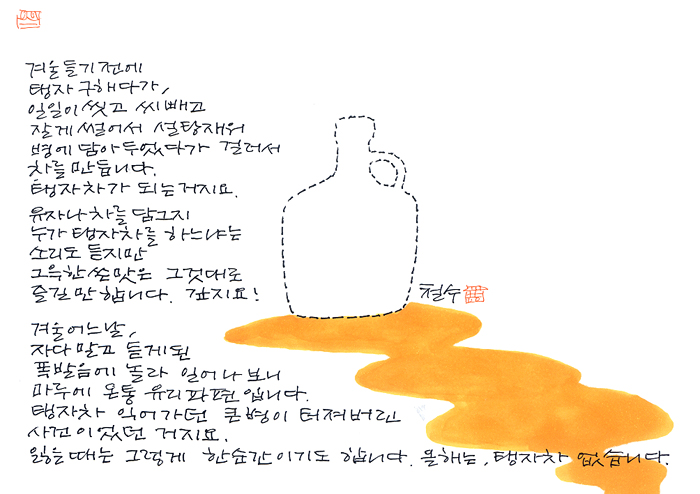 겨울들기전에
탱자 구해다가,
일일이 씻고 씨빼고
잘게 썰어서 설탕재워
병에 담아두었다가 걸러서
차를 만듭니다.
탱자차가 되는거지요.
유자나 차를 담그지
누가 탱자차를 하느냐는
소리도 듣지만
그윽한 쓴맛은 그것대로
즐길만합니다. 감지요!
철수
겨울 어느날,
자다 말고 듣게된
폭발음에 놀라 일어나 보니
마루에 온통 유리파편입니다.
탱자차 익어가던 큰병이 터져버린
사건이 있었던 거지요.
잃을때는 그렇게 한순간이기도 합니다. 올해는, 탱자차 없습니다.